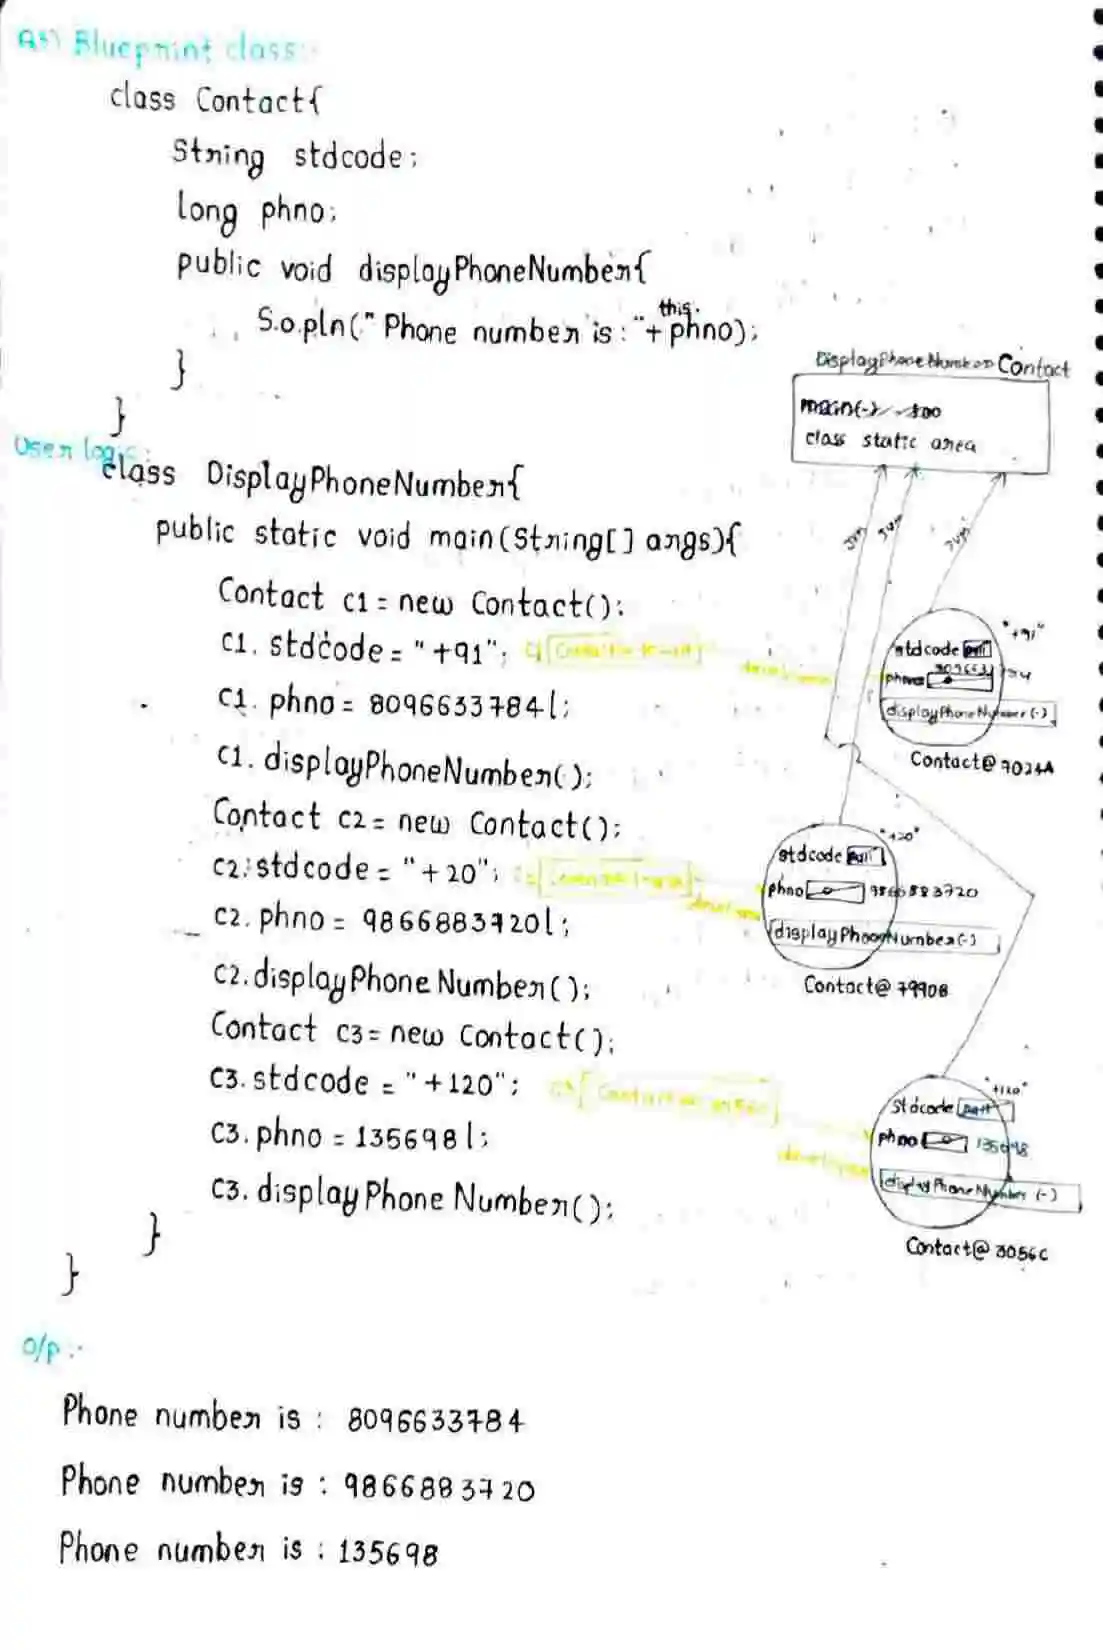 A3) Blueprint class:-
class Contact{
String stdcode;
long phno;
public void displayPhoneNumber{
this.
S.o.pln("Phone number is : "+ phno);
}
}
User logic:
class DisplayPhoneNumber{
public static void main(String[] args){
Contact c1 = new Contact();
c1. stdcode = "+91";
c1. phno = 8096633784l;
c1. displayPhoneNumber();
Contact c2 = new Contact();
c2. stdcode = "+20";
c2. phno = 9866883720l;
c2. displayPhoneNumber();
Contact c3 = new Contact();
c3. stdcode = "+120";
c3. phno = 135698l;
c3. displayPhoneNumber();
}
}
DisplayPhoneNumber Contact
main(-)
class static area
"+91"
stdcode null
displayPhoneNumber(-)
Contact@ 7024A
"+20"
stdcode null
phno 0 9866883720
displayPhoneNumber(-)
Contact@ 7990B
"+120"
stdcode null
phno 0 135698
displayPhoneNumber (-)
Contact@ 3056C
O/p :-
Phone number is : 8096633784
Phone number is : 9866883720
Phone number is : 135698